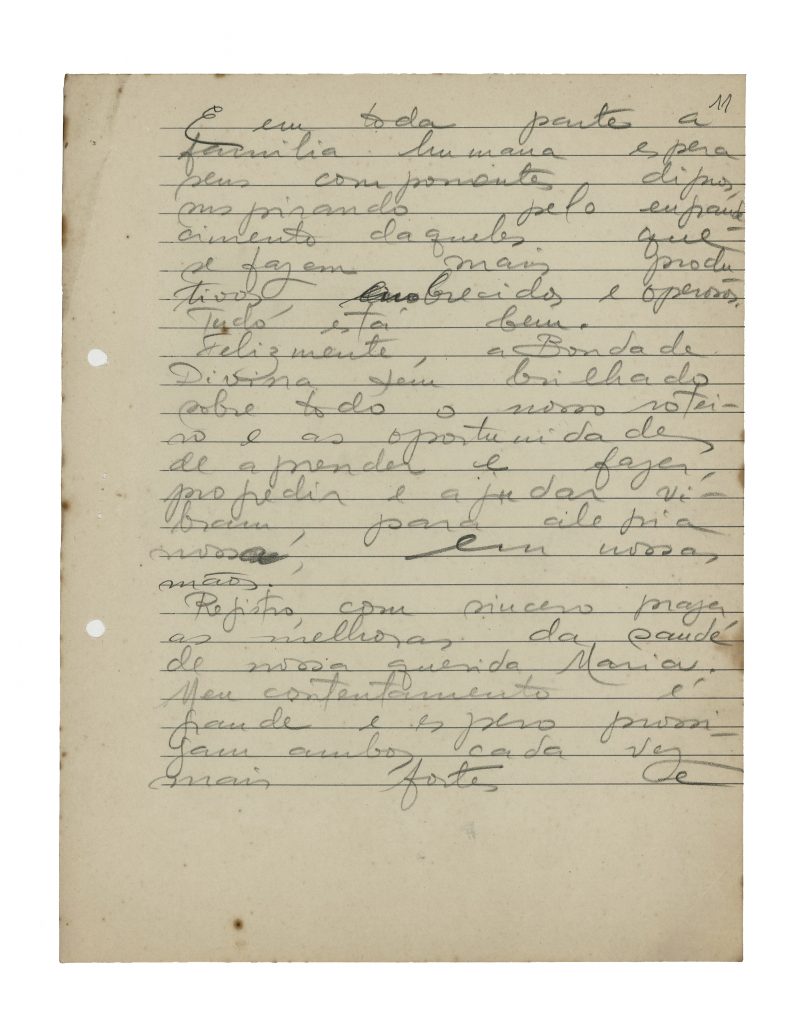 11
E em toda parte a
familia humana espera
seus componentes dignos,
inspirando pelo engrande-
cimento daqueles que
se façam mais produ-
tivos, enobrecidos e operosos.
Tudo está bem.
Felizmente, a Bondade
Divina tem brilhado
sobre todo o nosso rotei-
ro e as oportunidades
de aprender e fazer,
progredir e ajudar vi-
bram, para alegria
nossa, em nossas
mãos.
Registro com sincero prazer
as melhoras da saude
de nossa querida Maria.
Meu contentamento é
grande e espero prossi-
gam ambos cada vez
mais fortes e